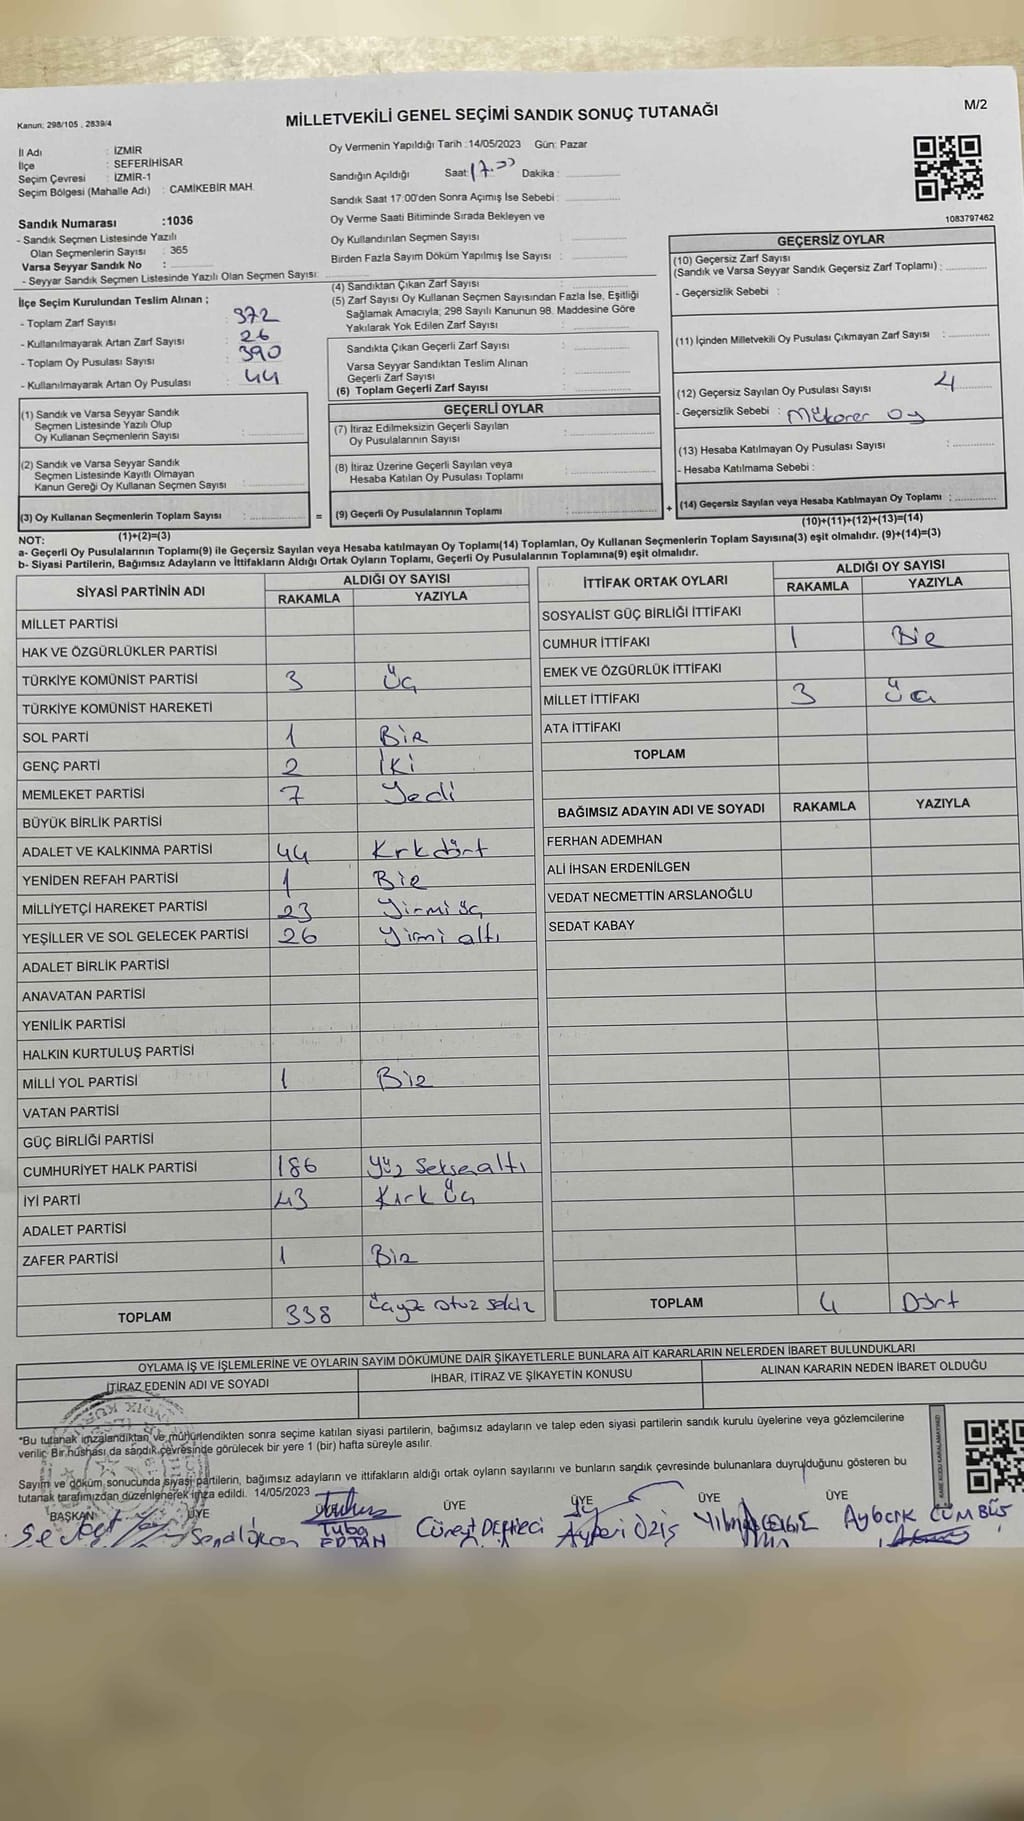 Kanun: 298/105 , 2839/4
MİLLETVEKİLİ GENEL SEÇİMİ SANDIK SONUÇ TUTANAĞI
M/2
İl Adı : İZMİR
İlçe : SEFERİHİSAR
Seçim Çevresi : İZMİR-1
Seçim Bölgesi (Mahalle Adı) : CAMİKEBİR MAH.
Sandık Numarası :1036
- Sandık Seçmen Listesinde Yazılı
Olan Seçmenlerin Sayısı : 365
Varsa Seyyar Sandık No :
- Seyyar Sandık Seçmen Listesinde Yazılı Olan Seçmen Sayısı:
Oy Vermenin Yapıldığı Tarih :14/05/2023 Gün: Pazar
Sandığın Açıldığı Saat: 17.00 Dakika :
Sandık Saat 17:00'den Sonra Açımış İse Sebebi :
Oy Verme Saati Bitiminde Sırada Bekleyen ve
Oy Kullandırılan Seçmen Sayısı :
Birden Fazla Sayım Döküm Yapılmış İse Sayısı :
1083797462
İlçe Seçim Kurulundan Teslim Alınan ;
- Toplam Zarf Sayısı : 372
- Kullanılmayarak Artan Zarf Sayısı : 26
- Toplam Oy Pusulası Sayısı : 390
- Kullanılmayarak Artan Oy Pusulası : 44
(1) Sandık ve Varsa Seyyar Sandık
Seçmen Listesinde Yazılı Olup
Oy Kullanan Seçmenlerin Sayısı :
(2) Sandık ve Varsa Seyyar Sandık
Seçmen Listesinde Kayıtlı Olmayan
Kanun Gereği Oy Kullanan Seçmen Sayısı :
(3) Oy Kullanan Seçmenlerin Toplam Sayısı :
(1)+(2)=(3)
(4) Sandıktan Çıkan Zarf Sayısı :
(5) Zarf Sayısı Oy Kullanan Seçmen Sayısından Fazla İse, Eşitliği
Sağlamak Amacıyla; 298 Sayılı Kanunun 98. Maddesine Göre
Yakılarak Yok Edilen Zarf Sayısı :
Sandıkta Çıkan Geçerli Zarf Sayısı :
Varsa Seyyar Sandıktan Teslim Alınan
Geçerli Zarf Sayısı :
(6) Toplam Geçerli Zarf Sayısı :
=
GEÇERLİ OYLAR
(7) İtiraz Edilmeksizin Geçerli Sayılan
Oy Pusulalarının Sayısı :
(8) İtiraz Üzerine Geçerli Sayılan veya
Hesaba Katılan Oy Pusulası Toplamı :
(9) Geçerli Oy Pusulalarının Toplamı :
+
GEÇERSİZ OYLAR
(10) Geçersiz Zarf Sayısı
(Sandık ve Varsa Seyyar Sandık Geçersiz Zarf Toplamı) :
- Geçersizlik Sebebi :
(11) İçinden Milletvekili Oy Pusulası Çıkmayan Zarf Sayısı :
(12) Geçersiz Sayılan Oy Pusulası Sayısı : 4
- Geçersizlik Sebebi : Mükorer oy
(13) Hesaba Katılmayan Oy Pusulası Sayısı :
- Hesaba Katılmama Sebebi :
(14) Geçersiz Sayılan veya Hesaba Katılmayan Oy Toplamı :
(10)+(11)+(12)+(13)=(14)
NOT:
a- Geçerli Oy Pusulalarının Toplamı(9) ile Geçersiz Sayılan veya Hesaba katılmayan Oy Toplamı(14) Toplamları, Oy Kullanan Seçmenlerin Toplam Sayısına(3) eşit olmalıdır. (9)+(14)=(3)
b- Siyasi Partilerin, Bağımsız Adayların ve İttifakların Aldığı Ortak Oyların Toplamı, Geçerli Oy Pusulalarının Toplamına(9) eşit olmalıdır.
SİYASİ PARTİNİN ADI
ALDIĞI OY SAYISI
RAKAMLA YAZIYLA
MİLLET PARTİSİ
HAK VE ÖZGÜRLÜKLER PARTİSİ
TÜRKİYE KOMÜNİST PARTİSİ 3 Üç
TÜRKİYE KOMÜNİST HAREKETİ
SOL PARTİ 1 Bir
GENÇ PARTİ 2 İki
MEMLEKET PARTİSİ 7 Yedi
BÜYÜK BİRLİK PARTİSİ
ADALET VE KALKINMA PARTİSİ 44 Krkdört
YENİDEN REFAH PARTİSİ 1 Bir
MİLLİYETÇİ HAREKET PARTİSİ 23 Yirmi üç
YEŞİLLER VE SOL GELECEK PARTİSİ 26 Yirmi altı
ADALET BİRLİK PARTİSİ
ANAVATAN PARTİSİ
YENİLİK PARTİSİ
HALKIN KURTULUŞ PARTİSİ
MİLLİ YOL PARTİSİ 1 Bir
VATAN PARTİSİ
GÜÇ BİRLİĞİ PARTİSİ
CUMHURİYET HALK PARTİSİ 186 Yüz Seksenaltı
İYİ PARTİ 43 Kırk Üç
ADALET PARTİSİ
ZAFER PARTİSİ 1 Bir
TOPLAM 338 Üçyüz otuz sekiz
İTTİFAK ORTAK OYLARI
ALDIĞI OY SAYISI
RAKAMLA YAZIYLA
SOSYALİST GÜÇ BİRLİĞİ İTTİFAKI
CUMHUR İTTİFAKI 1 Bir
EMEK VE ÖZGÜRLÜK İTTİFAKI
MİLLET İTTİFAKI 3 Üç
ATA İTTİFAKI
TOPLAM
BAĞIMSIZ ADAYIN ADI VE SOYADI RAKAMLA YAZIYLA
FERHAN ADEMHAN
ALİ İHSAN ERDENİLGEN
VEDAT NECMETTİN ARSLANOĞLU
SEDAT KABAY
TOPLAM 4 Dört
OYLAMA İŞ VE İŞLEMLERİNE VE OYLARIN SAYIM DÖKÜMÜNE DAİR ŞİKAYETLERLE BUNLARA AİT KARARLARIN NELERDEN İBARET BULUNDUKLARI
İTİRAZ EDENİN ADI VE SOYADI
İHBAR, İTİRAZ VE ŞİKAYETİN KONUSU
ALINAN KARARIN NEDEN İBARET OLDUĞU
*Bu tutanak imzalandıktan ve mühürlendikten sonra seçime katılan siyasi partilerin, bağımsız adayların ve talep eden siyasi partilerin sandık kurulu üyelerine veya gözlemcilerine
verilir. Bir nüshası da sandık çevresinde görülecek bir yere 1 (bir) hafta süreyle asılır.
Sayım ve döküm sonucunda siyasi partilerin, bağımsız adayların ve ittifakların aldığı ortak oyların sayılarını ve bunların sandık çevresinde bulunanlara duyrulduğunu gösteren bu
tutanak tarafımızdan düzenlenerek imza edildi. 14/05/2023
KARE KODU KARALAMAYINIZ!
BAŞKAN ÜYE ÜYE ÜYE ÜYE ÜYE ÜYE
Tuba
Cüneyt
Ayberk CÜMBÜŞ